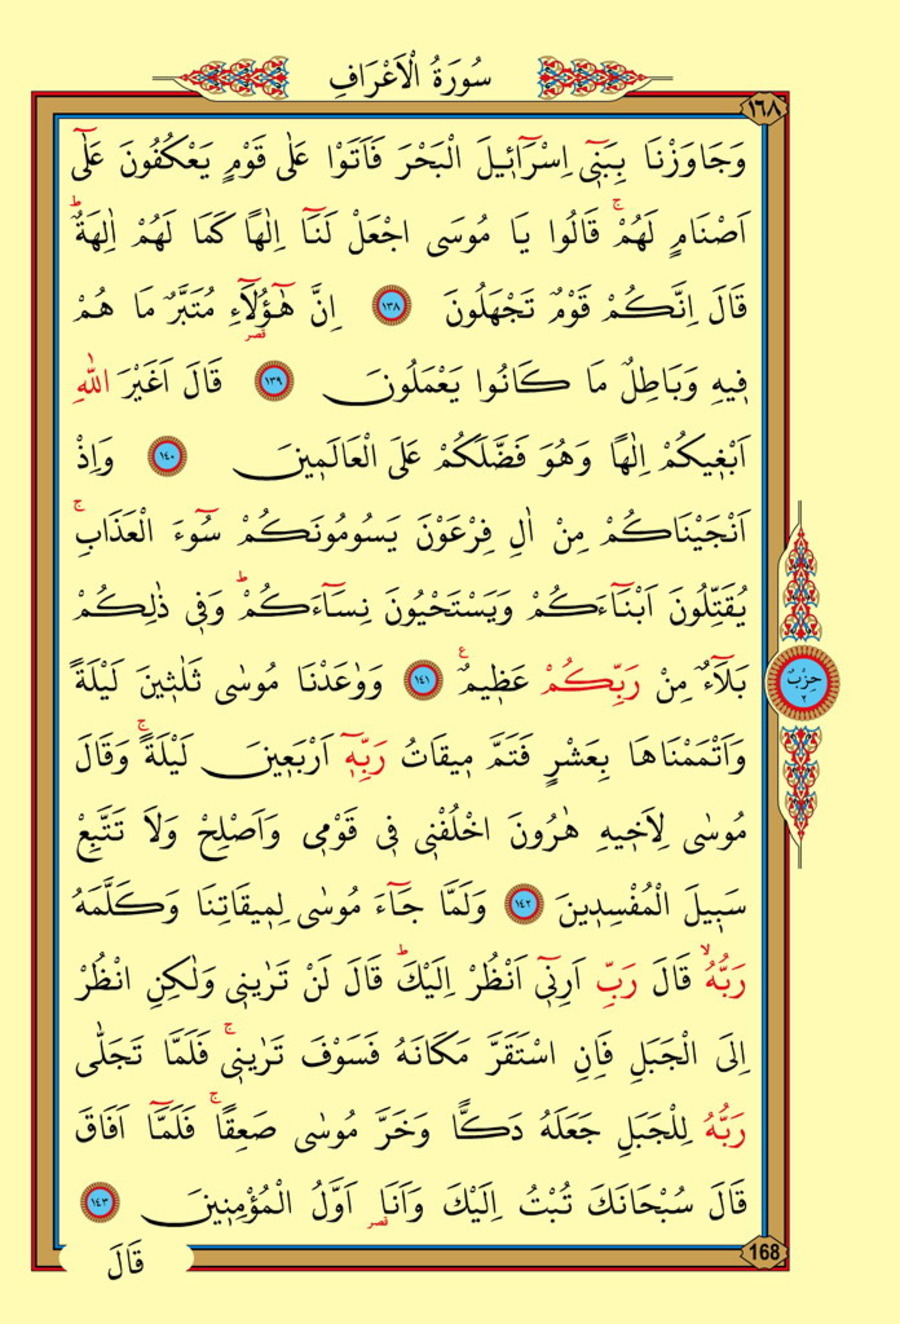 سُورَةُ الْاَعْرَافِ
١٦٨
وَجَاوَزْنَا بِبَنٖٓي اِسْرَٓائٖلَ الْبَحْرَ فَاَتَوْا عَلٰى قَوْمٍ يَعْكُفُونَ عَلٰٓى
اَصْنَامٍ لَهُمْۚ قَالُوا يَا مُوسَى اجْعَلْ لَنَٓا اِلٰهًا كَمَا لَهُمْ اٰلِهَةٌؕ
قَالَ اِنَّكُمْ قَوْمٌ تَجْهَلُونَ ﴿١٣٨﴾ اِنَّ هٰٓؤُ۬لَٓاءِ مُتَبَّرٌ مَا هُمْ
قصر
فٖيهِ وَبَاطِلٌ مَا كَانُوا يَعْمَلُونَ ﴿١٣٩﴾ قَالَ اَغَيْرَ اللّٰهِ
اَبْغٖيكُمْ اِلٰهًا وَهُوَ فَضَّلَكُمْ عَلَى الْعَالَمٖينَ ﴿١٤٠﴾ وَاِذْ
اَنْجَيْنَاكُمْ مِنْ اٰلِ فِرْعَوْنَ يَسُومُونَكُمْ سُٓوءَ الْعَذَابِۚ
يُقَتِّلُونَ اَبْنَٓاءَكُمْ وَيَسْتَحْيُونَ نِسَٓاءَكُمْؕ وَفٖي ذٰلِكُمْ
بَلَٓاءٌ مِنْ رَبِّكُمْ عَظٖيمٌ ﴿١٤١﴾ وَوٰعَدْنَا مُوسٰى ثَلٰثٖينَ لَيْلَةً
حِزْبٌ
٢
وَاَتْمَمْنَاهَا بِعَشْرٍ فَتَمَّ مٖيقَاتُ رَبِّهٖٓ اَرْبَعٖينَ لَيْلَةًۚ وَقَالَ
مُوسٰى لِاَخٖيهِ هٰرُونَ اخْلُفْنٖي فٖي قَوْمٖي وَاَصْلِحْ وَلَا تَتَّبِعْ
سَبٖيلَ الْمُفْسِدٖينَ ﴿١٤٢﴾ وَلَمَّا جَٓاءَ مُوسٰى لِمٖيقَاتِنَا وَكَلَّمَهُ
رَبُّهُۙ قَالَ رَبِّ اَرِنٖٓي اَنْظُرْ اِلَيْكَؕ قَالَ لَنْ تَرٰينٖي وَلٰكِنِ انْظُرْ
اِلَى الْجَبَلِ فَاِنِ اسْتَقَرَّ مَكَانَهُ فَسَوْفَ تَرٰينٖيۚ فَلَمَّا تَجَلّٰى
رَبُّهُ لِلْجَبَلِ جَعَلَهُ دَكًّا وَخَرَّ مُوسٰى صَعِقًاۚ فَلَمَّٓا اَفَاقَ
قَالَ سُبْحَانَكَ تُبْتُ اِلَيْكَ وَاَنَا اَوَّلُ الْمُؤْمِنٖينَ ﴿١٤٣﴾
قصر
168
قَالَ